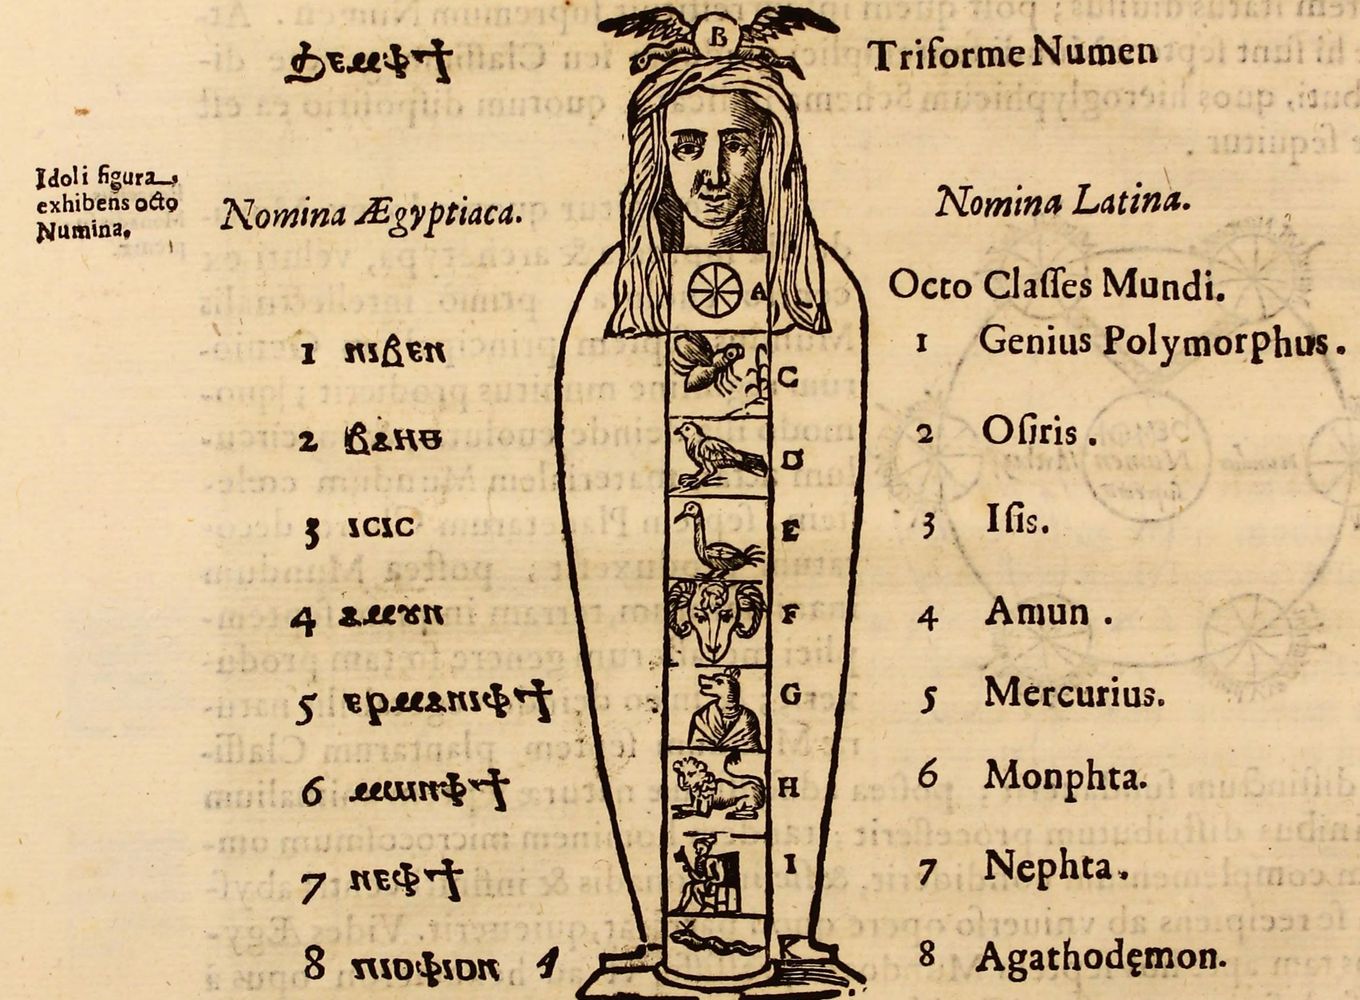 Ϧⲉⲙⲫϯ
Triforme Numen
Idoli figura
exhibens octo
Numina.
Nomina Ægyptiaca.
Nomina Latina.
Octo Claſſes Mundi.
1 ⲛⲓⲃⲉⲛ
1 Genius Polymorphus.
2
2 Oſiris.
3 ⲓⲥⲓⲥ
3 Iſis.
4 ⲁⲙⲟⲩⲛ
4 Amun.
5 ⲉⲣⲙⲁⲛⲓⲫϯ
5 Mercurius.
6 ⲙⲱⲛⲫϯ
6 Monphta.
7 ⲛⲉⲫϯ
7 Nephta.
8
8 Agathodęmon.
B
A
C
D
E
F
G
H
I
K